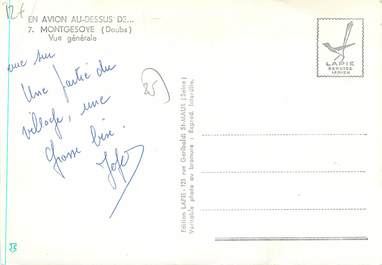 12f
EN AVION AU-DESSUS DE...
7. MONTGESOYE (Doubs)
Vue générale
vue sur
Une partie du
village, une
Grosse bise.
25
LAPIE
SERVICE
AÉRIEN
Edition LAPIE - 123 rue Garibaldi St-MAUR (Seine)
Véritable photo au bromure : Reprod. Interdite.